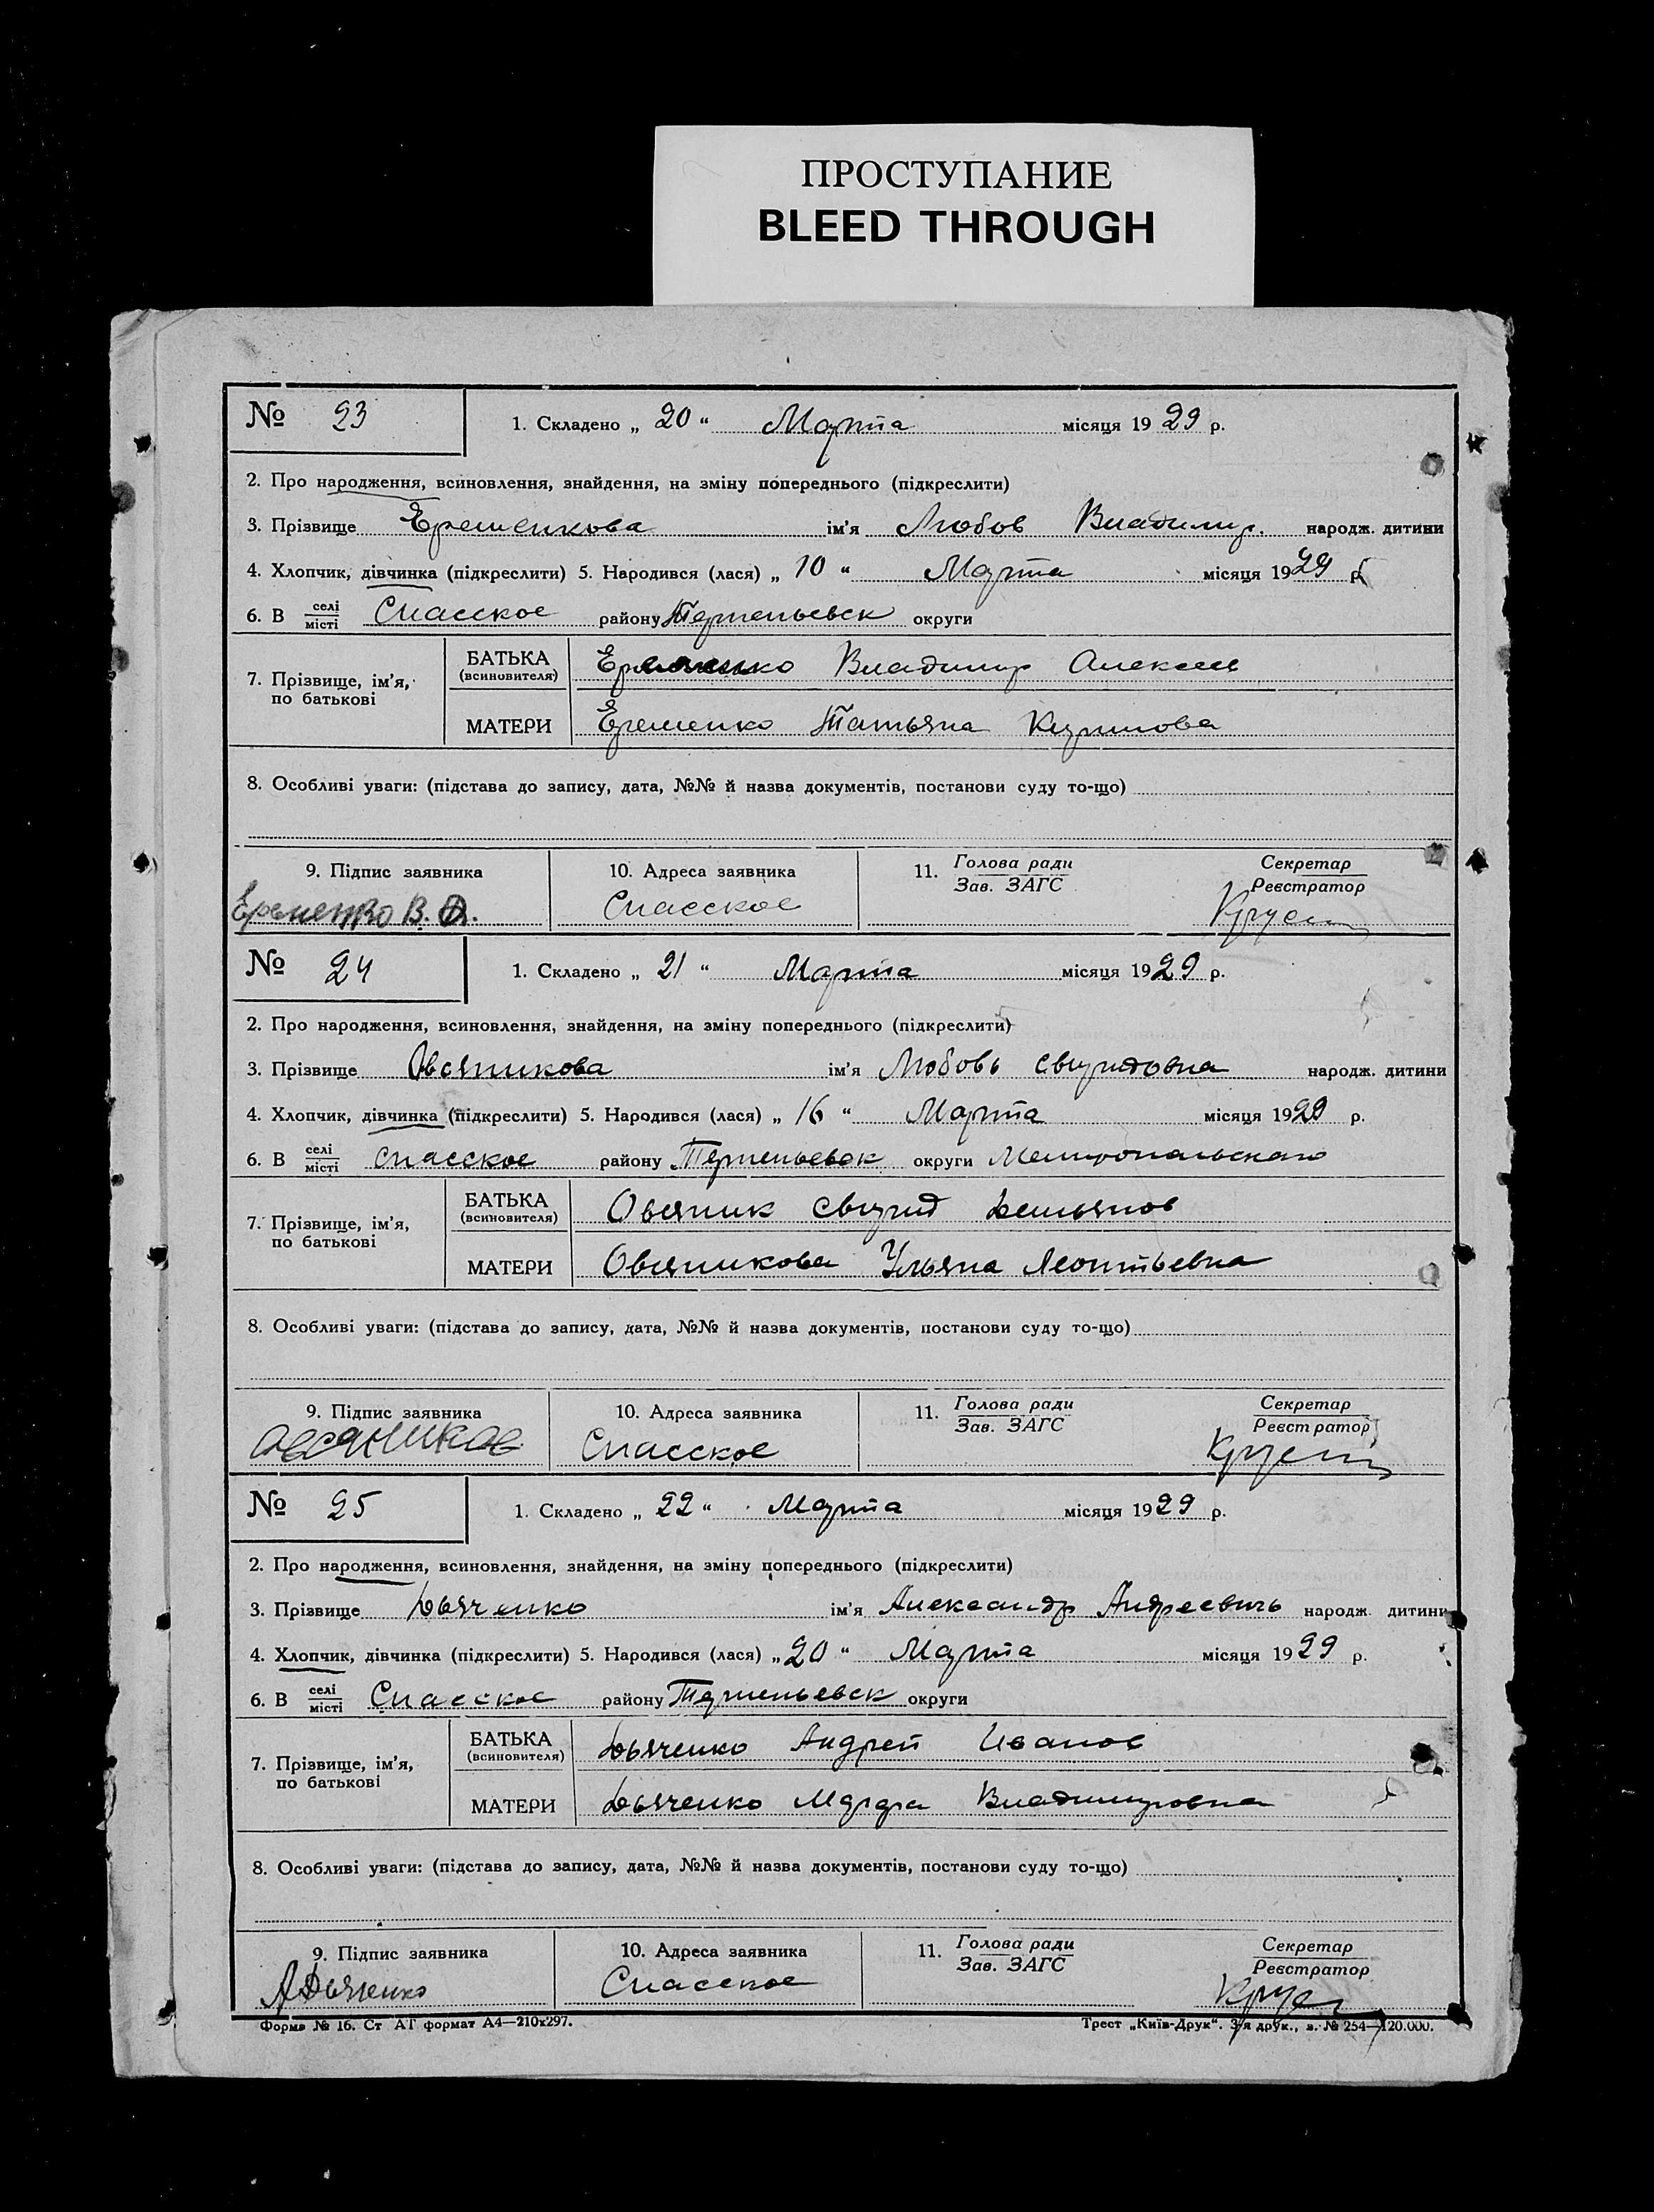 ПРОСТУПАНИЕ
BLEED THROUGH
№ 23 1. Складено „ 20 “ Марта місяця 1929 р.
2. Про народження, всиновлення, знайдення, на зміну попереднього (підкреслити)
3. Прізвище Еременкова ім'я Любов Владимир. народж. дитини
4. Хлопчик, дівчинка (підкреслити) 5. Народився (лася) „ 10 “ Марта місяця 1929 р.
6. В селі місті Спасское району Терпеньевск округи
7. Прізвище, ім'я, по батькові
БАТЬКА (всиновителя) Еременко Владимир Алексеев
МАТЕРИ Еременко Татьяна
8. Особливі уваги: (підстава до запису, дата, №№ й назва документів, постанови суду то-що)
9. Підпис заявника 10. Адреса заявника 11. Голова ради Зав. ЗАГС Секретар Реєстратор
Еременко В. А. Спасское
№ 24 1. Складено „ 21 “ Марта місяця 1929 р.
2. Про народження, всиновлення, знайдення, на зміну попереднього (підкреслити)
3. Прізвище Овсяникова ім'я Любовь Свиридовна народж. дитини
4. Хлопчик, дівчинка (підкреслити) 5. Народився (лася) „ 16 “ Марта місяця 1929 р.
6. В селі місті Спасское району Терпеньевск округи Мелитопольского
7. Прізвище, ім'я, по батькові
БАТЬКА (всиновителя) Овсяник Свирид Демьянов
МАТЕРИ Овсяникова Ульяна Леонтьевна
8. Особливі уваги: (підстава до запису, дата, №№ й назва документів, постанови суду то-що)
9. Підпис заявника 10. Адреса заявника 11. Голова ради Зав. ЗАГС Секретар Реєстратор
Овсяников Спасское
№ 25 1. Складено „ 22 “ Марта місяця 1929 р.
2. Про народження, всиновлення, знайдення, на зміну попереднього (підкреслити)
3. Прізвище Дьяченко ім'я Александр Андреевичь народж. дитини
4. Хлопчик, дівчинка (підкреслити) 5. Народився (лася) „ 20 “ Марта місяця 1929 р.
6. В селі місті Спасское району Терпеньевск округи
7. Прізвище, ім'я, по батькові
БАТЬКА (всиновителя) Дьяченко Андрей Иванов
МАТЕРИ Дьяченко Владимировна
8. Особливі уваги: (підстава до запису, дата, №№ й назва документів, постанови суду то-що)
9. Підпис заявника 10. Адреса заявника 11. Голова ради Зав. ЗАГС Секретар Реєстратор
А Дьяченко Спасское
Форма № 16. Ст АТ формат А4—210x297. Трест „Київ-Друк“. 3-я друк., з. № 254—120.000.